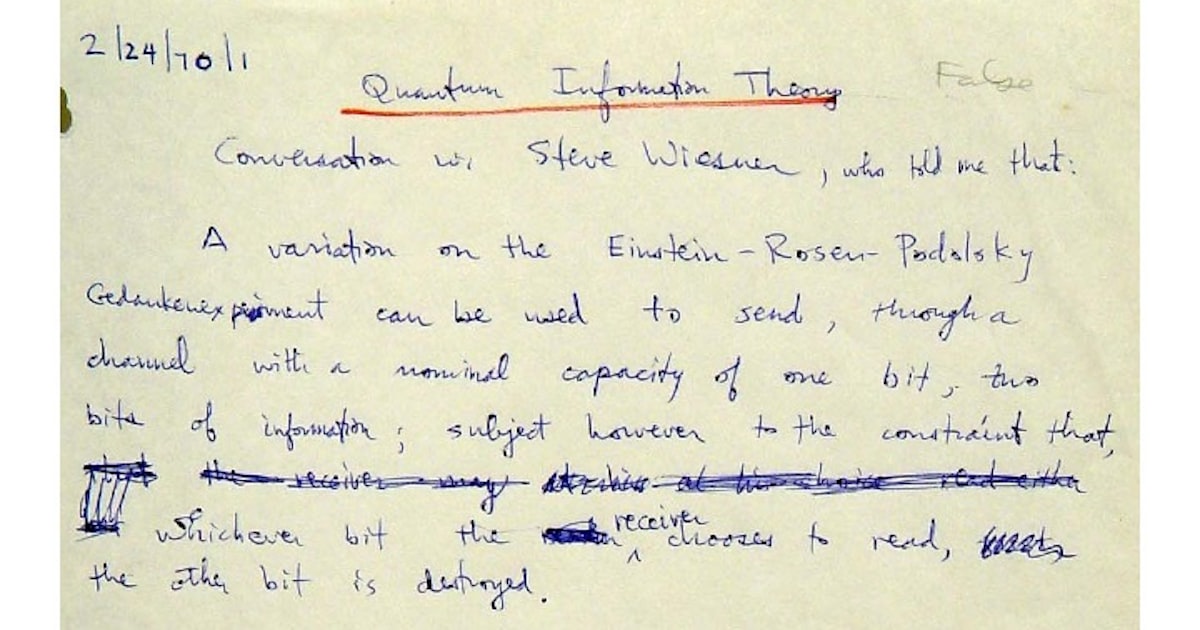 2/24/70/1
Quantum Information Theory
False
Conversation w. Steve Wiesner, who told me that:
A variation on the Einstein-Rosen-Podolsky
Gedankenexperiment can be used to send, through a
channel with a nominal capacity of one bit, two
bits of information; subject however to the constraint that,
the receiver may at his choice read either
receiver
whichever bit the chooses to read,
the other bit is destroyed.